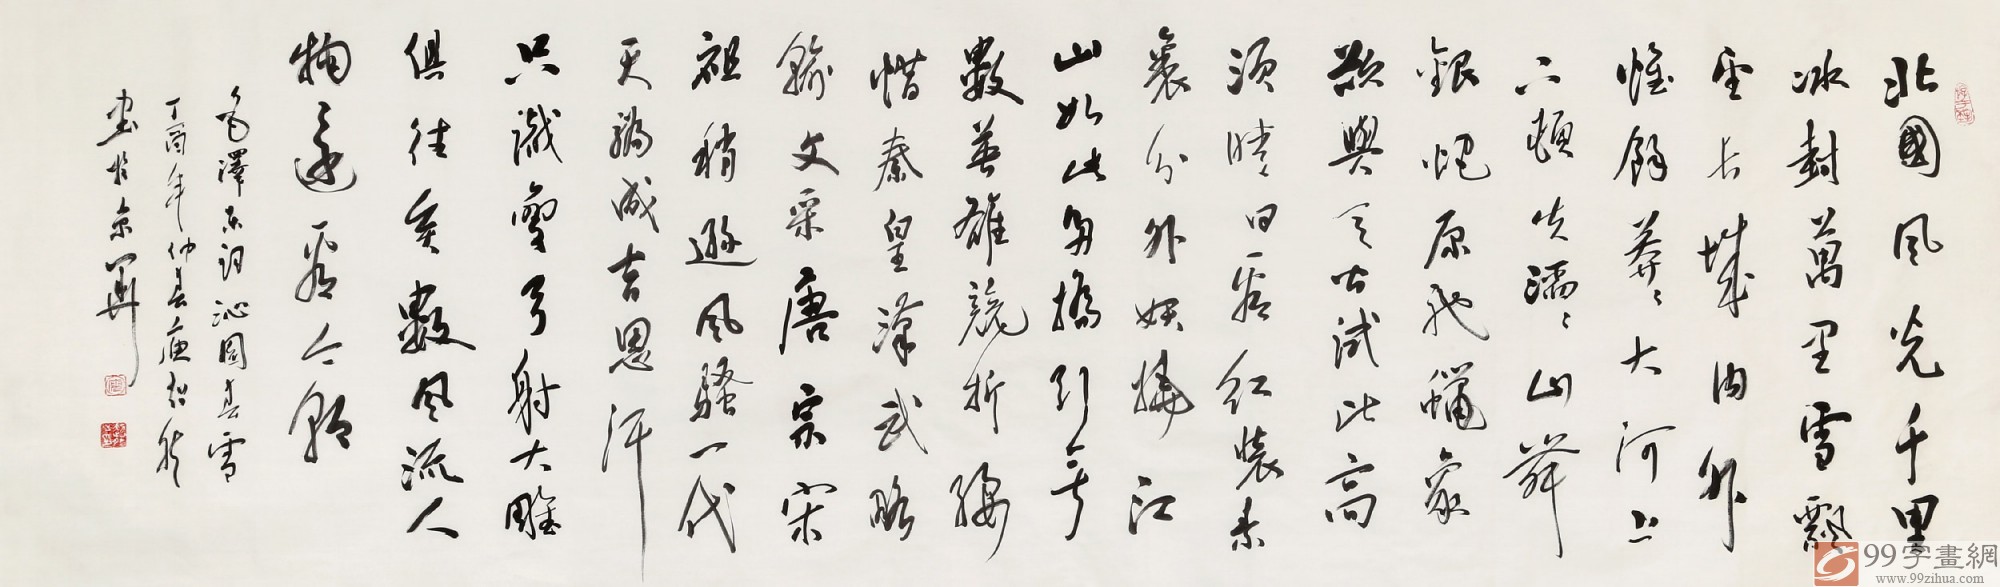 北國風光千里
冰封萬里雪飄
望長城內外
惟餘莽々大河上
下頓失滔々山舞
銀蛇原馳蠟象
欲與天公試比高
須晴日看紅裝素
裹分外妖嬈江
山如此多嬌引無
數英雄競折腰
惜秦皇漢武略
輸文采唐宗宋
祖稍遜風騷一代
天驕成吉思汗
只識彎弓射大雕
俱往矣數風流人
物還看今朝
毛澤東詞沁園春雪
丁酉年仲春
書於京華
99字畫網
www.99zihua.com